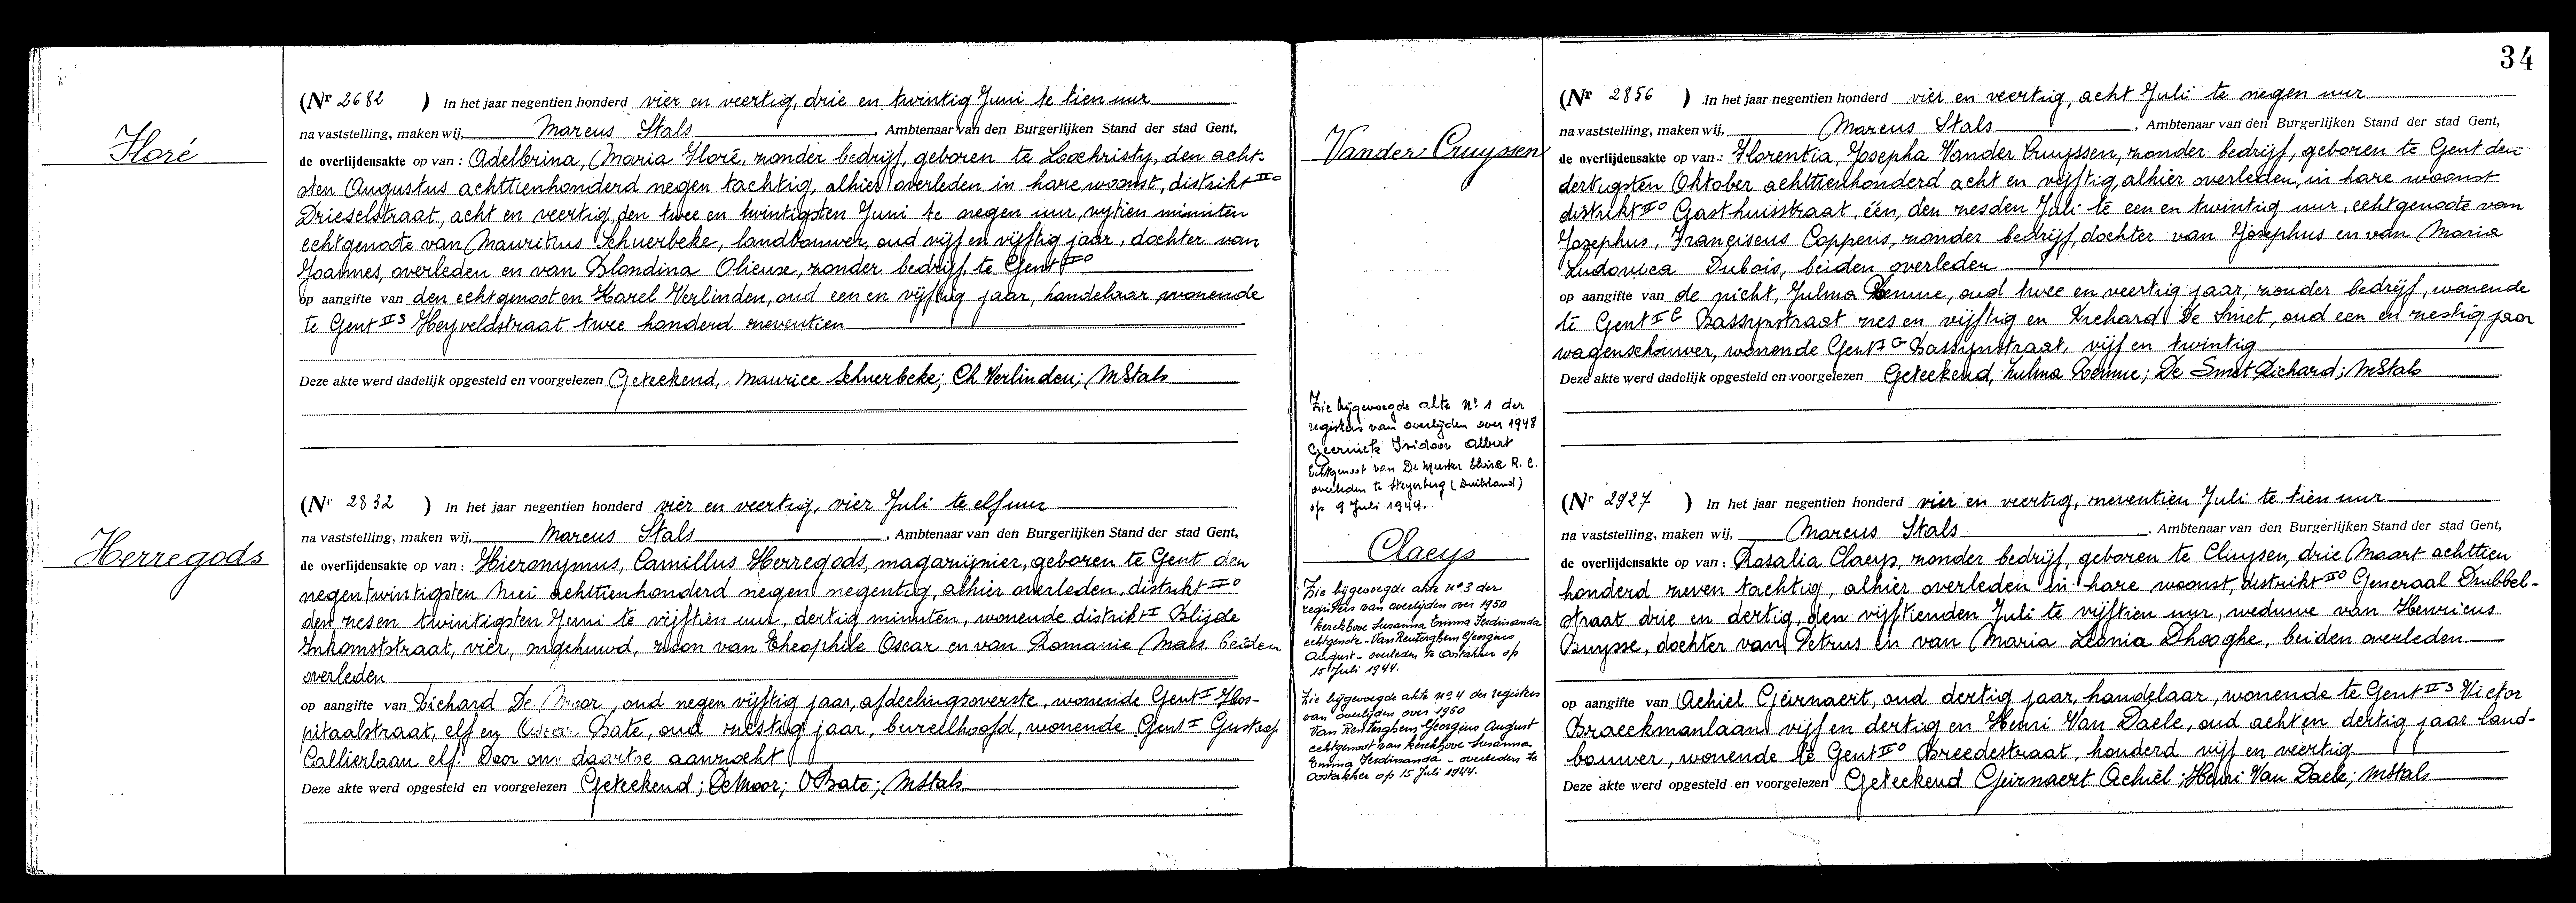 Floré
(Nr 2682 ) In het jaar negentien honderd vier en veertig, drie en twintig Juni te tien uur
na vaststelling, maken wij, Marcus Stals, Ambtenaar van den Burgerlijken Stand der stad Gent,
de overlijdensakte op van : Adelbrina, Maria Floré, zonder bedrijf, geboren te Loochristy, den acht-
sten Augustus achttienhonderd negen tachtig, alhier overleden in hare woonst, distrikt IIo
Drieselstraat, acht en veertig, den twee en twintigsten Juni te negen uur, vijtien minuten
echtgenoote van Mauritius Schuerbeke, landbouwer, oud vijf en vijftig jaar, dochter van
Joannes, overleden en van Blondina Olieuse, zonder bedrijf, te Gent IIo
op aangifte van den echtgenoot en Karel Verlinden, oud een en vijftig jaar, handelaar wonende
te Gent IIs Heyveldstraat twee honderd zeventien
Deze akte werd dadelijk opgesteld en voorgelezen Geteekend, Maurice Schuerbeke; Ch Verlinden; MStals
Herregods
(Nr 2832 ) In het jaar negentien honderd vier en veertig, vier Juli te elf uur
na vaststelling, maken wij, Marcus Stals, Ambtenaar van den Burgerlijken Stand der stad Gent,
de overlijdensakte op van : Hieronymus, Camillus Herregods, magazijnier, geboren te Gent den
negen twintigsten Mei achttienhonderd negen negentig, alhier overleden, distrikt IIo
den zes en twintigsten Juni te vijftien uur, dertig minuten, wonende distrikt I Blijde
Inkomststraat, vier, ongehuwd, zoon van Theophile Oscar en van Romanie Maes beiden
overleden
op aangifte van Richard De Moor, oud negen vijftig jaar, afdeelingsoverste, wonende Gent I Hos-
pitaalstraat, elf en Bate, oud zestig jaar, bureelhoofd, wonende Gent I Gustaaf
Callierlaan elf. Door ons daartoe aanzocht
Deze akte werd opgesteld en voorgelezen Geteekend; DeMoor; OBate; MStals
34
Vander Cruyssen
(Nr 2856 ) In het jaar negentien honderd vier en veertig, acht Juli te negen uur
na vaststelling, maken wij, Marcus Stals, Ambtenaar van den Burgerlijken Stand der stad Gent,
de overlijdensakte op van : Florentia, Josepha Vander Cruyssen, zonder bedrijf, geboren te Gent den
dertigsten Oktober achttienhonderd acht en vijftig, alhier overleden, in hare woonst
distrikt IIo Gasthuisstraat, één, den zesden Juli te een en twintig uur, echtgenoote van
Jozephus, Franciscus Coppens, zonder bedrijf, dochter van Josephus en van Maria
Ludovica Dubois, beiden overleden
op aangifte van de nicht, Julma, oud twee en veertig jaar, zonder bedrijf, wonende
te Gent I G Bassijnstraat zes en vijftig en Richard De Smet, oud een en zestig jaar
wagenschouwer, wonende Gent I G Bassijnstraat, vijf en twintig
Deze akte werd dadelijk opgesteld en voorgelezen Geteekend, Zulma; De Smet Richard; MStals
Zie bijgevoegde akte No 1 der
registers van overlijden over 1948
Geernick Isidoor Albert
Echtgenoot van De Muster R. C.
overleden te Heyerberg (Duitsland)
op 9 Juli 1944.
Claeys
Zie bijgevoegde akte no 3 der
registers van overlijden over 1950
Kerckhove Susanna Emma Ferdinanda
echtgenote - Van Renterghem Georgius
August - overleden te Oostakker op
15 Juli 1944.
Zie bijgevoegde akte no 4 der registers
van overlijden over 1950
Van Renterghem Georgius August
echtgenoot van Kerckhove Susanna
Emma Ferdinanda - overleden te
Oostakker op 15 Juli 1944.
(Nr 2927 ) In het jaar negentien honderd vier en veertig, zeventien Juli te tien uur
na vaststelling, maken wij, Marcus Stals, Ambtenaar van den Burgerlijken Stand der stad Gent,
de overlijdensakte op van : Rosalia Claeys, zonder bedrijf, geboren te Cluysen, drie Maart achttien
honderd zeven tachtig, alhier overleden in hare woonst, distrikt IIo Generaal Dubbel-
straat drie en dertig, den vijftienden Juli te vijftien uur, weduwe van Henricus
Buysse, dochter van Petrus en van Maria Leonia Dhooghe, beiden overleden
op aangifte van Achiel Geirnaert, oud dertig jaar, handelaar, wonende te Gent IIs Victor
Braeckmanlaan vijf en dertig en Henri Van Daele, oud acht en dertig jaar land-
bouwer, wonende te Gent IIo Breedestraat, honderd vijf en veertig
Deze akte werd opgesteld en voorgelezen Geteekend Geirnaert Achiel; Henri Van Daele; MStals